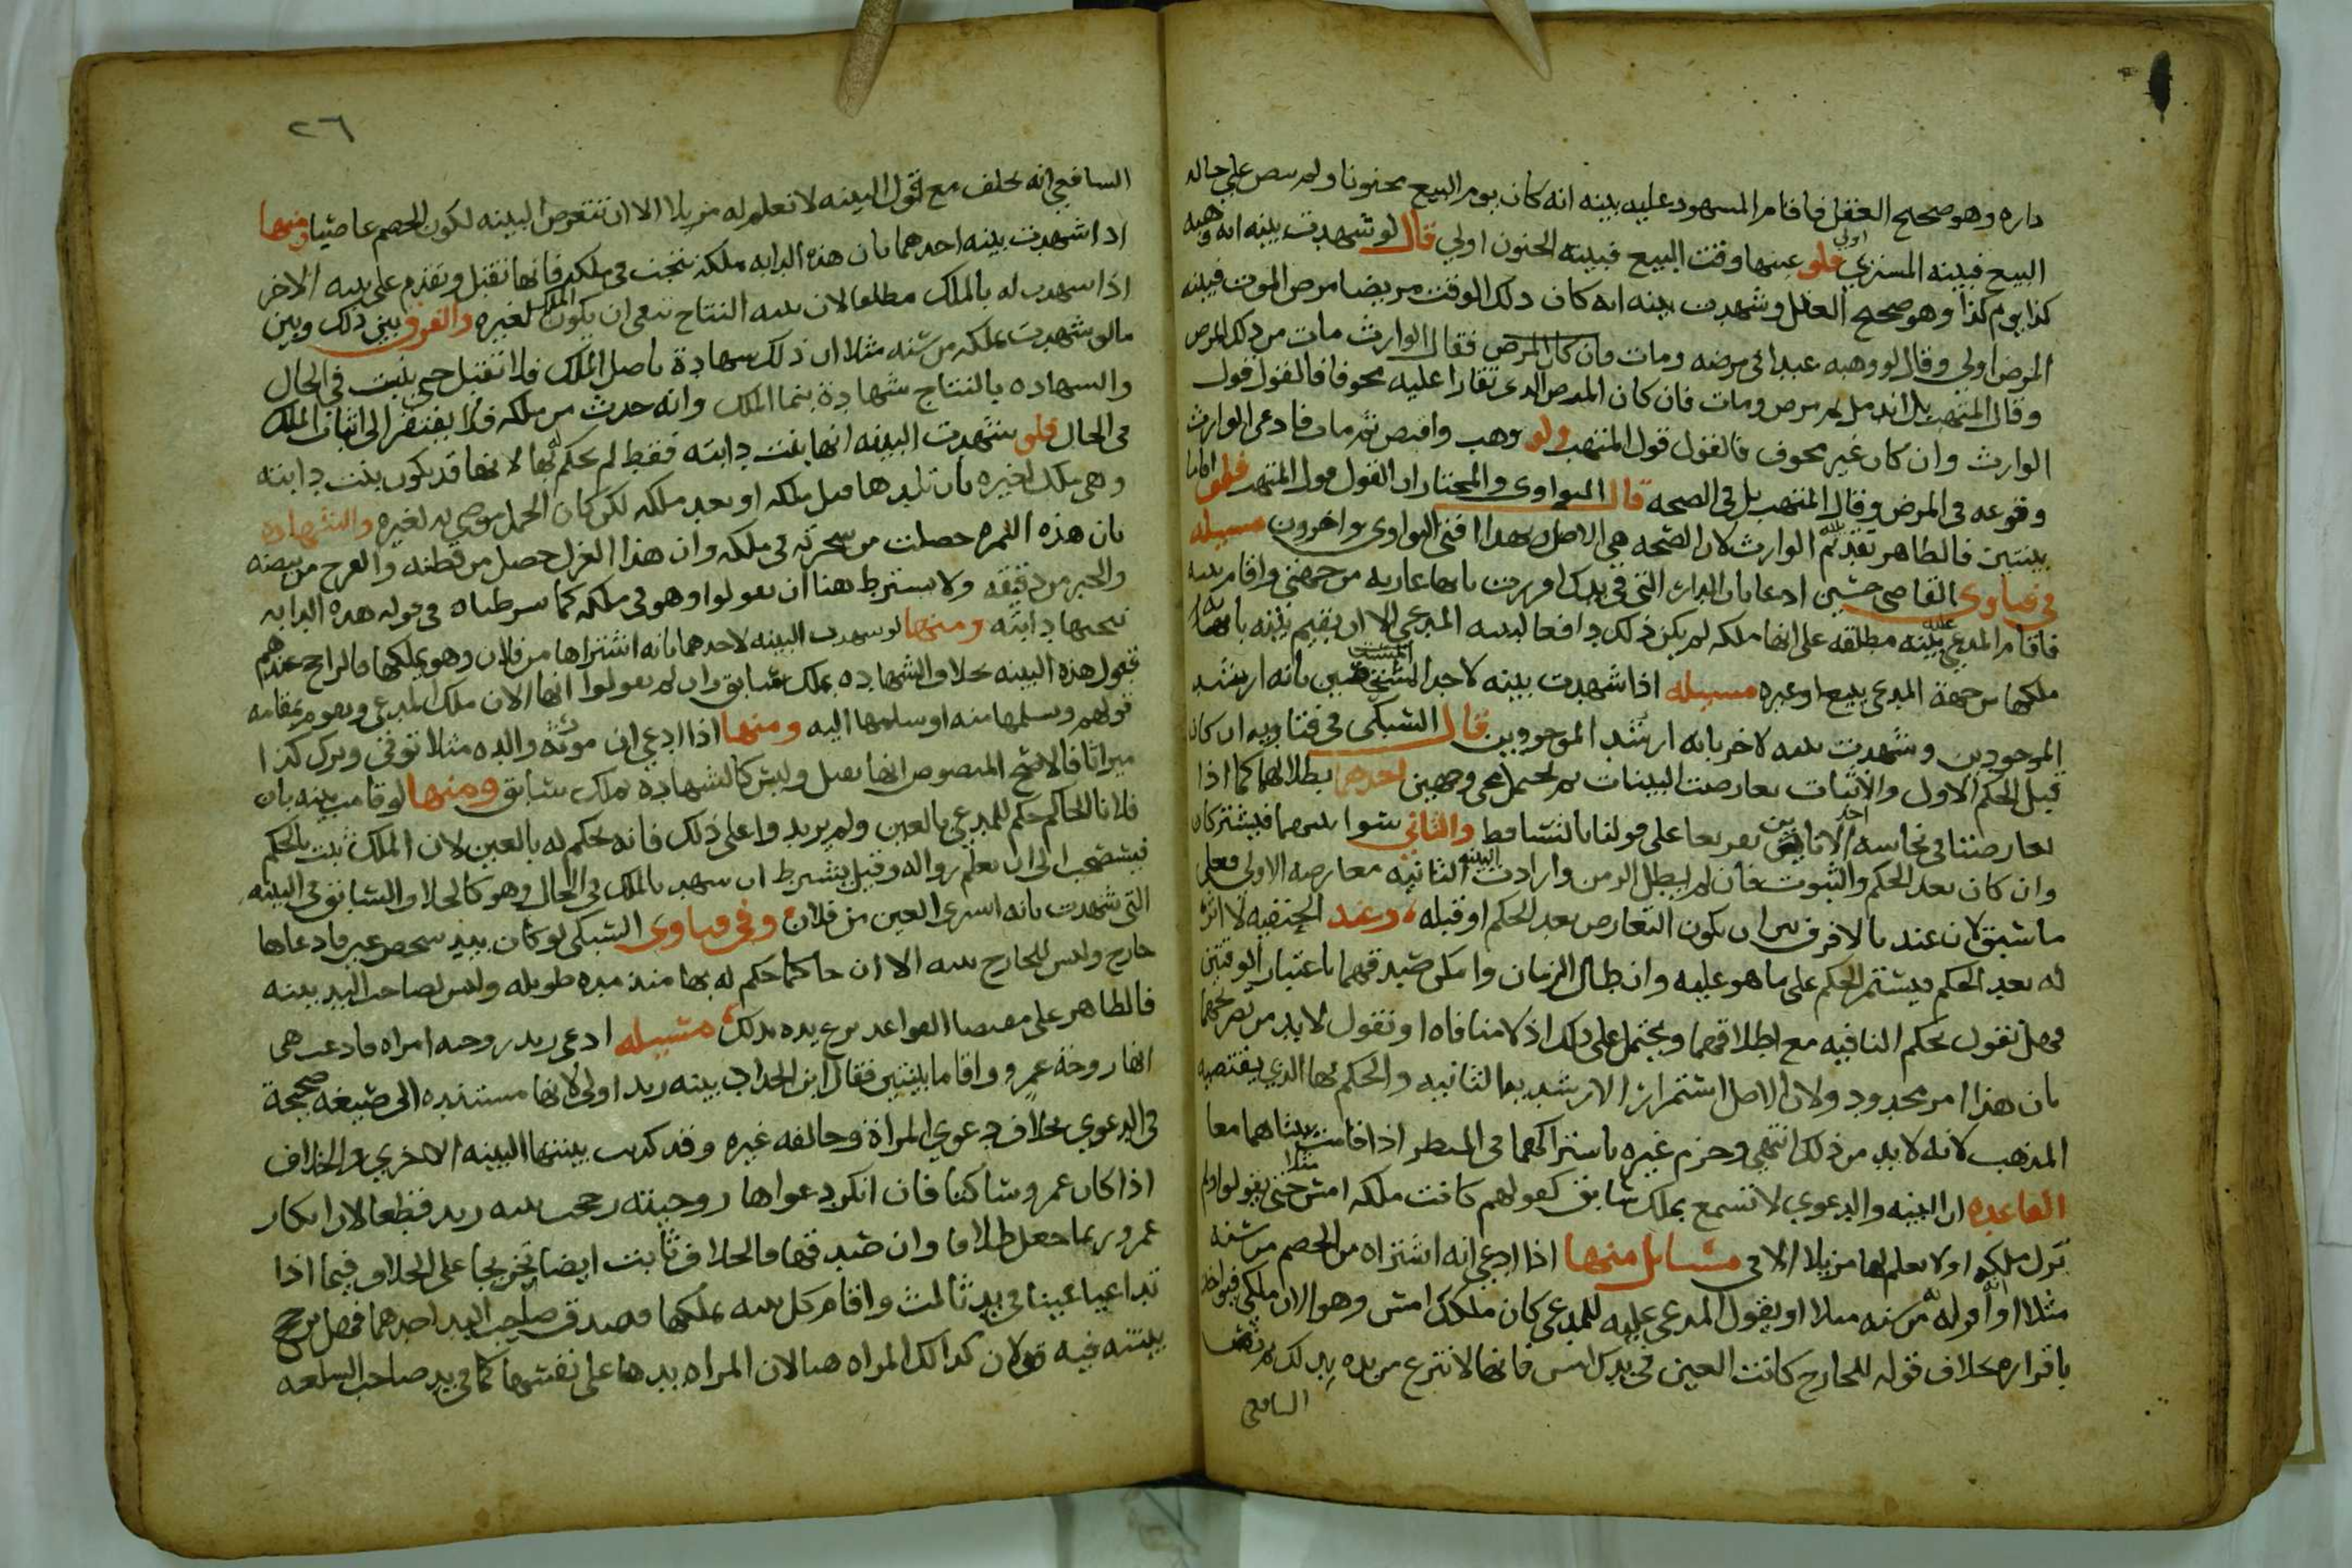 داره وهو صحيح العقل فاقام المشهود عليه بينه انه كان يوم البيع مجنونا ولم ينص على حاله
البيع فبينه المشتري اولي فلو عينها وقت البيع فبينه الجنون اولي قال لو شهدت بينه انه وهبه
كذا يوم كذا وهو صحيح العقل وشهدت بينه انه كان ذلك الوقت مريضا مرض الموت فبينه
المرض اولي وقال لو وهبه عبدا في مرضه ومات فان كان المرض فقال الوارث مات من ذلك المرض
وقال المتهب بل اندمل ثم مرض ومات فان كان المرض الذي تقارا عليه مخوفا فالقول قول
الوارث وان كان غير مخوف فالقول قول المتهب ولو وهب واقبض ثم مات فادعي الوارث
وقوعه في المرض وقال المتهب بل في الصحه قال النواوي والمختار ان القول قول المتهب فلو اقاما
بينتين فالظاهر تقديم الوارث لان الصحه هي الاصل وبهذا افتي النواوي واخرون مسيله
في فتاوى القاضي حسين ادعا بان الدار التي في يدك اوهرت بانها عاريه من جهتي واقام بينه
فاقام المدعي عليه بينه مطلقه على انها ملكه لم يكن ذلك دافعا لبينه المدعي الا ان يقيم بينه بانه
ملكها من جهة المدعي ببيع او غيره مسيله اذا شهدت بينه لاحد المستحقين بانه ارشد
الموجودين وشهدت بينه لاخر بانه ارشد الموجودين قال السبكي في فتاويه ان كان
قبل الحكم الاول والاثبات تعارضت البينات ثم يحتمل مجي وجهين احدهما بطلانهما كما اذا
تعارضتا في نجاسة احد الانايين تفريعا على قولنا بالتساقط والثاني سوا بينهما فيشتركان
وان كان بعد الحكم والثبوت فان لم يطل الزمن وارادت البينه الثانيه معارضه الاولى فعلى
ما سبق لان عندنا لا فرق بين ان يكون التعارض بعد الحكم او قبله وعند الحنفيه لا اثر
له بعد الحكم فيستمر الحكم على ما هو عليه وان طال الزمان وامكن صدقهما باعتبار الوقتين
فهل نقول بحكم الثانيه مع اطلاقهما ويحتمل على ذلك اذ لا منافاه او نقول لا بد من تصريحهما
بان هذا امر محدود ولان الاصل استمرار الارشد بها الثانيه والحكم بها الذي يقتضيه
المذهب لانه لا بد من ذلك انتهي وجزم غيره باشتراكهما في النظر اذا قامت بينتاهما معا
القاعده ان البينه والدعوي لا تسمع بملك سابق كقولهم كانت ملكه امس مثلا حتى يقولوا ولم
يزل ملكه او لا نعلم لها مزيلا الا في مسائل منها اذا ادعى انه اشتراه من الخصم من سنه
مثلا او اقر له من سنه مثلا او يقول المدعى عليه للمدعي كان ملكك امس وهو الان ملكي فيواخذ
باقراره بخلاف قوله للخارج كانت العين في يدك امس فانها لا تنزع من يده بذلك ثم نص
السافعي
٢٦
السافعي انه يحلف مع قول البينه لا نعلم له مزيلا الا ان تتعرض البينه لكون الخصم غاصبا ومنها
اذا شهدت بينه احدهما بان هذه الدابه ملكه نتجت في ملكه فانها تقبل وتقدم على بينه الاخر
اذا شهدت له بالملك مطلقا لان بينه النتاج تنفي ان يكون الملك لغيره والفرق بين ذلك وبين
ما لو شهدت بملكه من سنه مثلا ان ذلك شهادة باصل الملك فلا تقبل حتى يثبت في الحال
والشهاده بالنتاج شهادة بنما الملك وانه حدث من ملكه فلا يفتقر الى اثبات الملك
في الحال فلو شهدت البينه انها بنت دابته فقط لم يحكم له بها لانها قد يكون بنت دابته
وهي ملك لغيره بان تلدها قبل ملكه او بعد ملكه لكن كان الحمل موصي به لغيره والشهاده
بان هذه الثمره حصلت من شجرته في ملكه وان هذا الغزل حصل من قطنه والفرخ من بيضه
والخبز من دقيقه ولا يشترط هنا ان يقولوا وهو في ملكه كما شرطناه في قوله هذه الدابه
نتجتها دابته ومنها لو شهدت البينه لاحدهما بانه اشتراها من فلان وهو يملكها فالراجح عندهم
قبول هذه البينه بخلاف الشهاده بملك سابق وان لم يقولوا انها الان ملك المدعي ويقوم مقامه
قولهم وسلمها منه او سلمها اليه ومنها اذا ادعي ان مورثه والده مثلا توفي وترك كذا
ميراثا فالاصح المنصوص انها تقبل وليس كالشهاده بملك سابق ومنها لو قامت بينه بان
فلانا الحاكم حكم للمدعي بالعين ولم يزيدوا على ذلك فانه يحكم له بالعين لان الملك ثبت بالحكم
فيستصحب الى ان يعلم زواله وقيل يشترط ان يشهد بالملك في الحال وهو كالخلاف السابق في البينه
التي شهدت بانه اشترى العين من فلان وفي فتاوى السبكي لو كان بيد شخص عين فادعاها
خارج وليس للخارج بينه الا ان حاكما حكم له بها منذ مده طويله وليس لصاحب اليد بينه
فالظاهر على مقتضا القواعد نزع يده بذلك مسيله ادعى زيد زوجيه امراه فادعت هي
انها زوجة عمرو واقاما بينتين فقال ابن الحداد بينه زيد اولى لانها مستنده الى صيغه صحيحة
في الدعوي بخلاف دعوي المراة وخالفه غيره وقد كذبت بينتها البينه الاخري والخلاف
اذا كان عمرو ساكتا فان انكر دعواها زوجيته رجحت بينه زيد قطعا لان انكار
عمرو ربما جعل طلاقا وان صدقها فالخلاف ثابت ايضا تخريجا على الخلاف فيما اذا
تداعيا عينا في يد ثالث واقام كل بينه بملكها فصدق صاحب اليد احدهما فهل ترجح
بينته فيه قولان كذلك المراه هنا لان المراه يدها على نفسها كما في يد صاحب السلعه